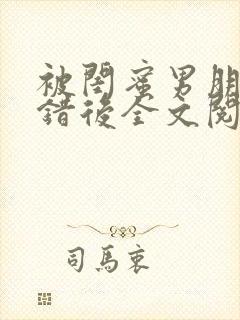 被閨蜜男朋
錯後全文閱
司馬衷